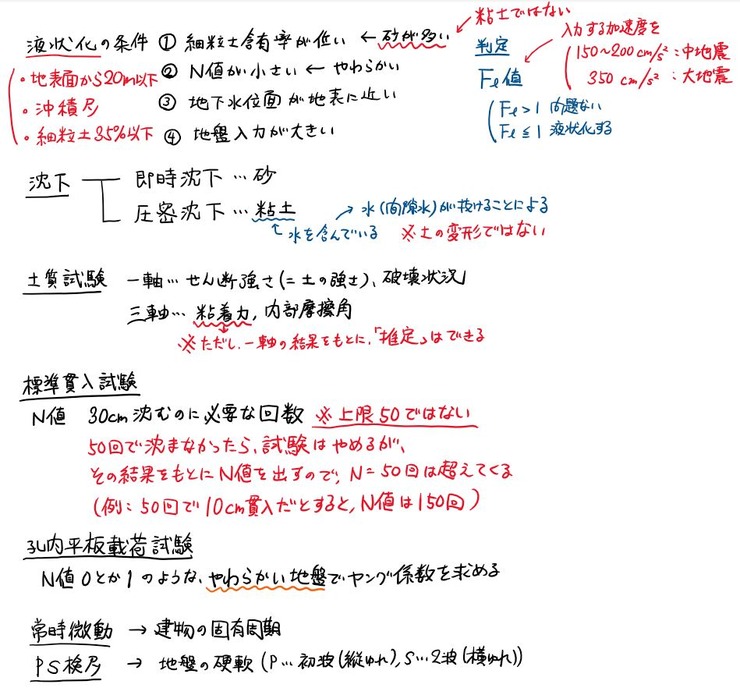 粘土ではない
液状化の条件 ① 細粒土含有率が低い ← 砂が多い
判定
入力する加速度を
・地表面から20m以下 ② N値が小さい ← やわらかい
Fℓ値
150~200cm/s² : 中地震
350 cm/s² : 大地震
・沖積層 ③ 地下水位面が地表に近い
Fℓ > 1 問題ない
Fℓ ≦ 1 液状化する
・細粒土35%以下 ④ 地盤入力が大きい
沈下 即時沈下 … 砂
圧密沈下 … 粘土 → 水(間隙水)が抜けることによる
水を含んでいる ※土の変形ではない
土質試験 一軸… せん断強さ(=土の強さ)、破壊状況
三軸… 粘着力, 内部摩擦角
※ただし、一軸の結果をもとに、「推定」はできる
標準貫入試験
N値 30cm 沈むのに必要な回数 ※上限50ではない
50回で沈まなかったら、試験はやめるが、
その結果をもとにN値を出すので、N=50回は超えてくる
(例: 50回で10cm貫入だとすると, N値は150回)
孔内平板載荷試験
N値0とか1のような、やわらかい地盤でヤング係数を求める
常時微動 → 建物の固有周期
PS検層 → 地盤の硬軟 (P… 初波(縦ゆれ), S…2波(横ゆれ))